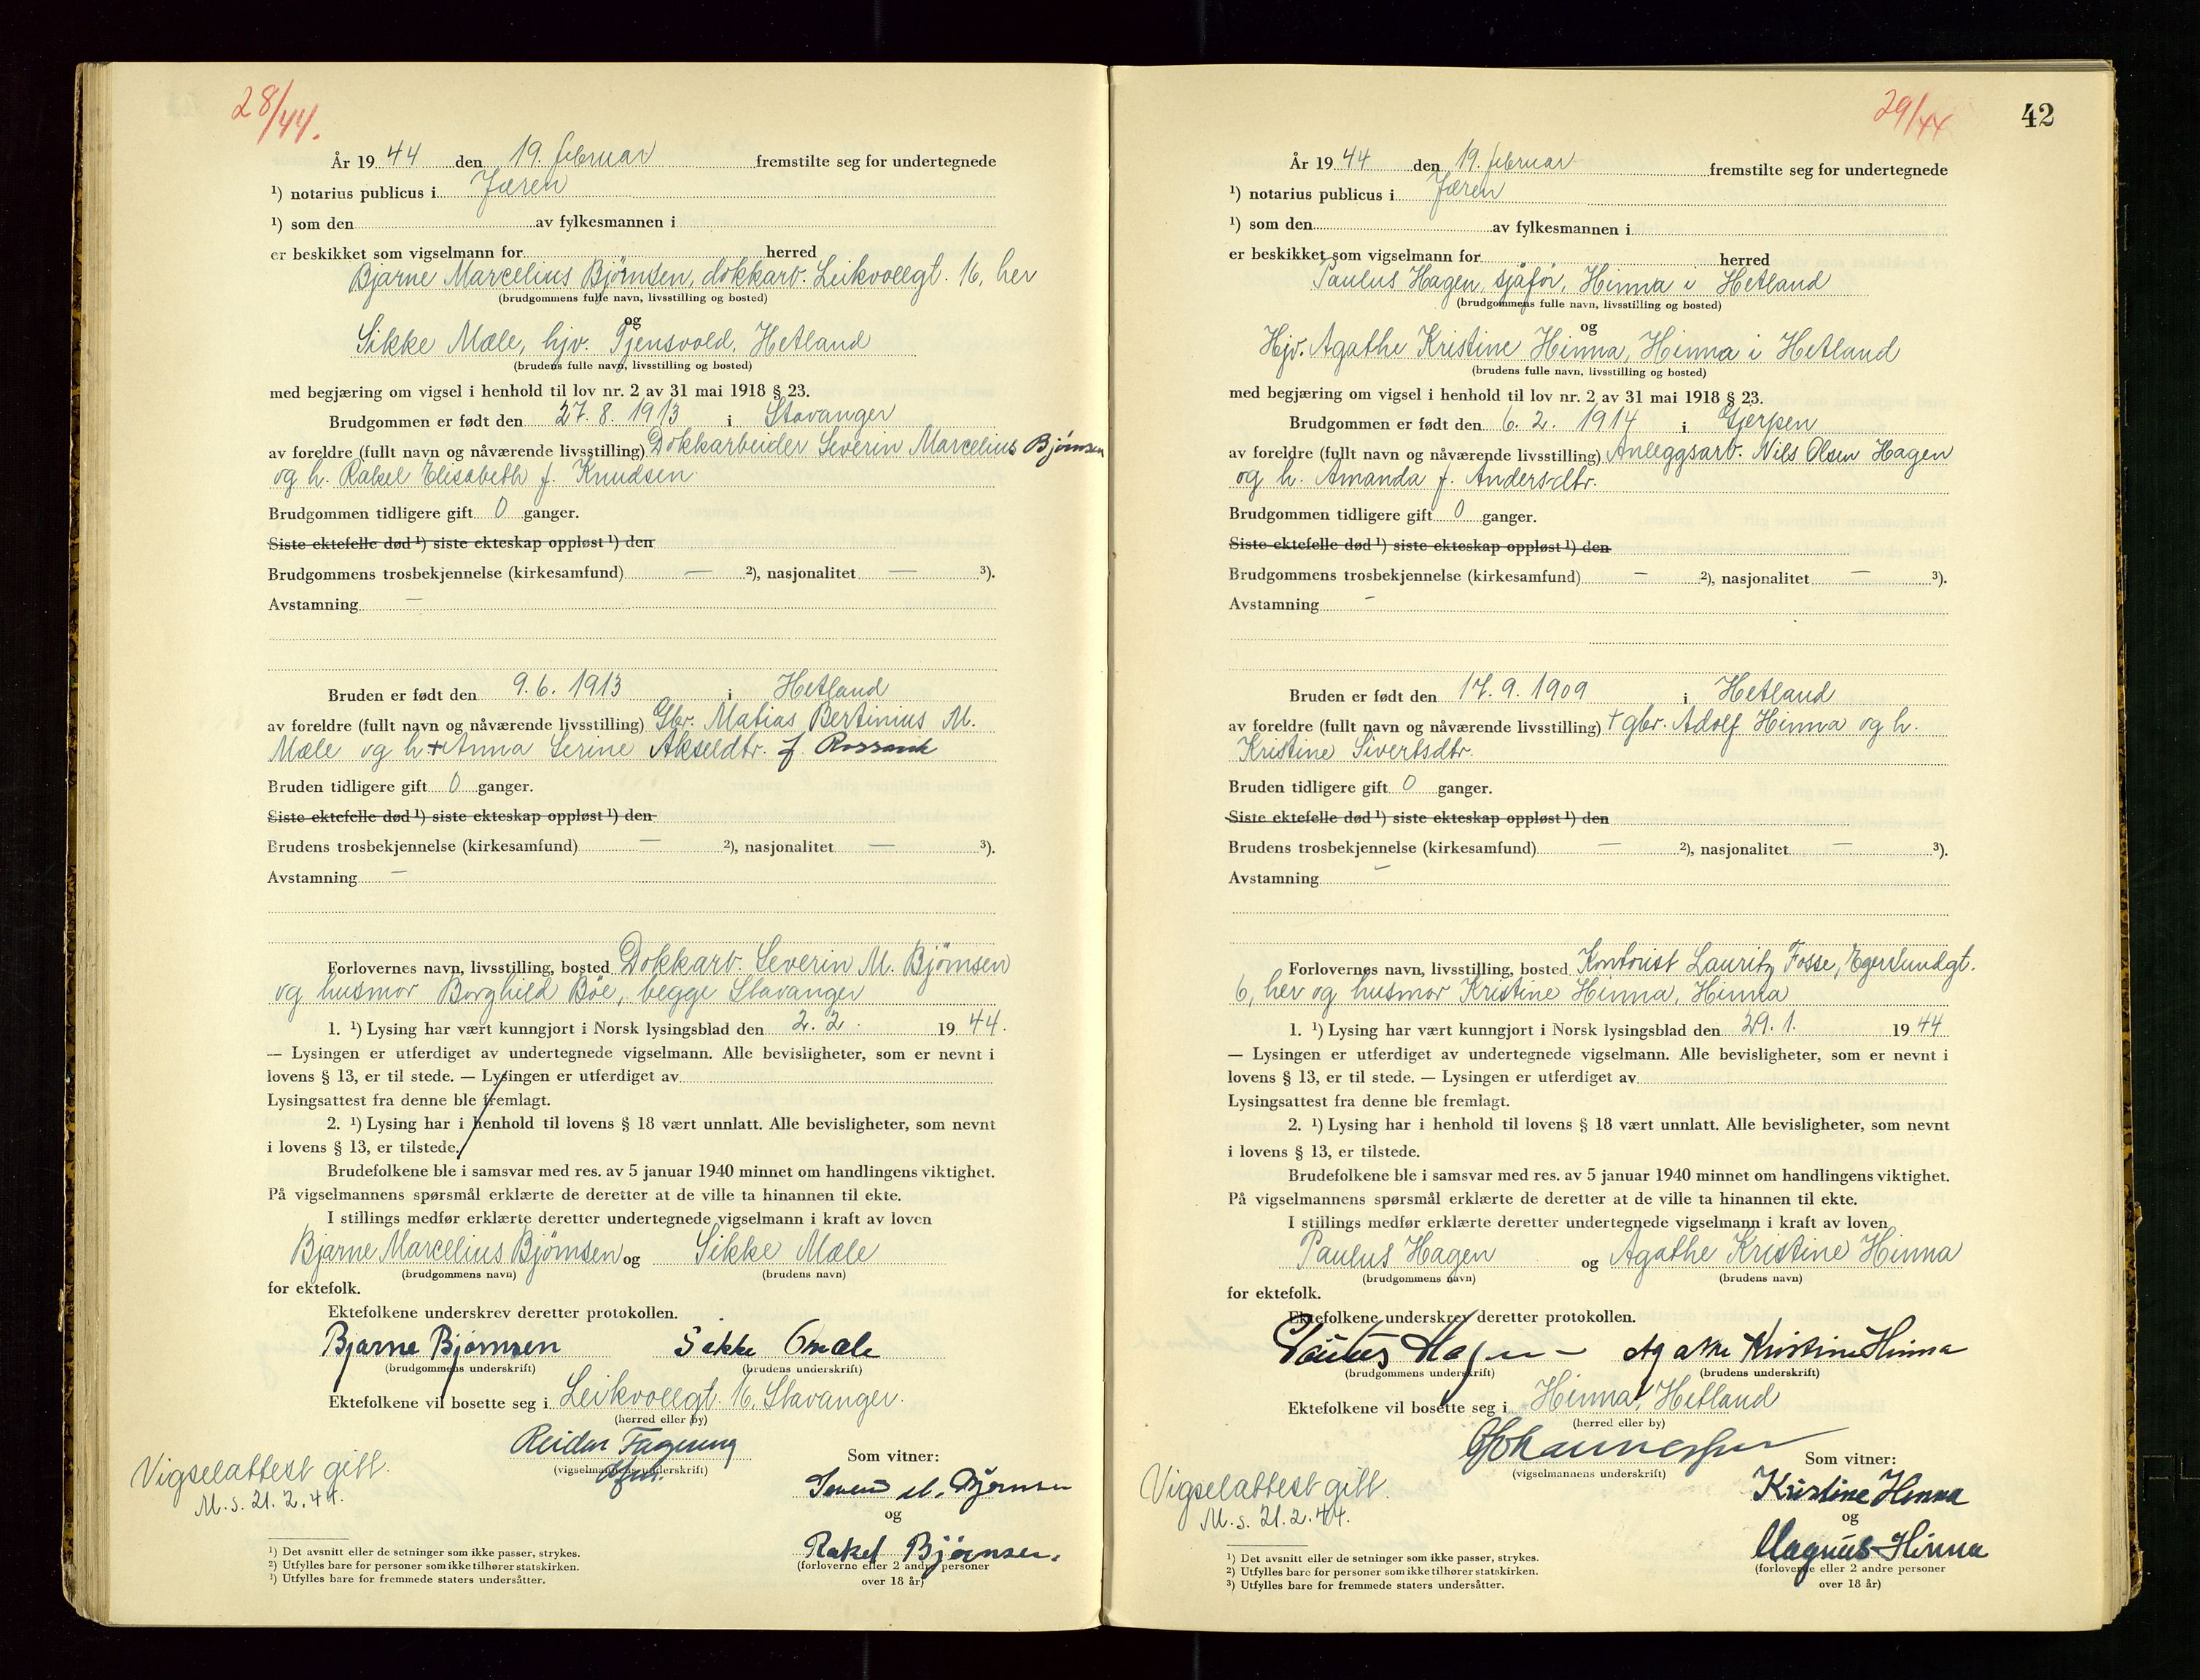 28/44.
År 19 44 den 19. februar fremstilte seg for undertegnede
¹) notarius publicus i Jæren
¹) som den av fylkesmannen i
er beskikket som vigselmann for herred
Bjarne Marcelius Bjørnsen, dokkarb. Leikvollgt. 16, her
(brudgommens fulle navn, livsstilling og bosted)
og
Sikke Mæle, hjv. Tjensvold, Hetland
(brudens fulle navn, livsstilling og bosted)
med begjæring om vigsel i henhold til lov nr. 2 av 31 mai 1918 § 23.
Brudgommen er født den 27. 8. 1913 i Stavanger
av foreldre (fullt navn og nåværende livsstilling) Dokkarbeider Severin Marcelius Bjørnsen
og h. Rakel Elisabeth f. Knudsen
Brudgommen tidligere gift 0 ganger.
Siste ektefelle død ¹) siste ekteskap oppløst ¹) den
Brudgommens trosbekjennelse (kirkesamfund) — ²), nasjonalitet — ³).
Avstamning —
Bruden er født den 9. 6. 1913 i Hetland
av foreldre (fullt navn og nåværende livsstilling) Gbr. Matias Bertinius M.
Mæle og h + Anna Serine Akseldtr. f.
Bruden tidligere gift 0 ganger.
Siste ektefelle død ¹) siste ekteskap oppløst ¹) den
Brudens trosbekjennelse (kirkesamfund) — ²), nasjonalitet — ³).
Avstamning —
Forlovernes navn, livsstilling, bosted Dokkarb. Severin M. Bjørnsen
og husmor Borghild Bøe, begge Stavanger
1. ¹) Lysing har vært kunngjort i Norsk lysingsblad den 2. 2. 19 44.
— Lysingen er utferdiget av undertegnede vigselmann. Alle bevisligheter, som er nevnt i
lovens § 13, er til stede. — Lysingen er utferdiget av
Lysingsattest fra denne ble fremlagt.
2. ¹) Lysing har i henhold til lovens § 18 vært unnlatt. Alle bevisligheter, som nevnt
i lovens § 13, er tilstede.
Brudefolkene ble i samsvar med res. av 5 januar 1940 minnet om handlingens viktighet.
På vigselmannens spørsmål erklærte de deretter at de ville ta hinannen til ekte.
I stillings medfør erklærte deretter undertegnede vigselmann i kraft av loven
Bjarne Marcelius Bjørnsen og Sikke Mæle
(brudgommens navn) (brudens navn)
for ektefolk.
Ektefolkene underskrev deretter protokollen.
Bjarne Bjørnsen Sikke Mæle
(brudgommens underskrift) (brudens underskrift)
Ektefolkene vil bosette seg i Leikvollgt. 16, Stavanger.
(herred eller by)
Reidar Fagerung
(vigselmannens underskrift)
Som vitner:
Vigselattest gitt.
M. S. 21. 2. 44.
Severin M. Bjørnsen
og
Rakel Bjørnsen.
(forloverne eller 2 andre personer
over 18 år)
¹) Det avsnitt eller de setninger som ikke passer, strykes.
²) Utfylles bare for personer som ikke tilhører statskirken.
³) Utfylles bare for fremmede staters undersåtter.
29/44
42
År 19 44 den 19. februar fremstilte seg for undertegnede
¹) notarius publicus i Jæren
¹) som den av fylkesmannen i
er beskikket som vigselmann for herred
Paulus Hagen, sjåfør, Hinna i Hetland
(brudgommens fulle navn, livsstilling og bosted)
og
Hjv. Agathe Kristine Hinna, Hinna i Hetland
(brudens fulle navn, livsstilling og bosted)
med begjæring om vigsel i henhold til lov nr. 2 av 31 mai 1918 § 23.
Brudgommen er født den 6. 2. 1914 i Gjerpen
av foreldre (fullt navn og nåværende livsstilling) Anleggsarb. Nils Olsen Hagen
og h. Amanda f. Andersdtr.
Brudgommen tidligere gift 0 ganger.
Siste ektefelle død ¹) siste ekteskap oppløst ¹) den
Brudgommens trosbekjennelse (kirkesamfund) — ²), nasjonalitet — ³).
Avstamning —
Bruden er født den 17. 9. 1909 i Hetland
av foreldre (fullt navn og nåværende livsstilling) + gbr. Adolf Hinna og h.
Kristine Sivertsdtr.
Bruden tidligere gift 0 ganger.
Siste ektefelle død ¹) siste ekteskap oppløst ¹) den
Brudens trosbekjennelse (kirkesamfund) — ²), nasjonalitet — ³).
Avstamning —
Forlovernes navn, livsstilling, bosted Kontorist Lauritz Fosse, Egerslundgt.
6, her og husmor Kristine Hinna, Hinna
1. ¹) Lysing har vært kunngjort i Norsk lysingsblad den 29. 1. 19 44
— Lysingen er utferdiget av undertegnede vigselmann. Alle bevisligheter, som er nevnt i
lovens § 13, er til stede. — Lysingen er utferdiget av
Lysingsattest fra denne ble fremlagt.
2. ¹) Lysing har i henhold til lovens § 18 vært unnlatt. Alle bevisligheter, som nevnt
i lovens § 13, er tilstede.
Brudefolkene ble i samsvar med res. av 5 januar 1940 minnet om handlingens viktighet.
På vigselmannens spørsmål erklærte de deretter at de ville ta hinannen til ekte.
I stillings medfør erklærte deretter undertegnede vigselmann i kraft av loven
Paulus Hagen og Agathe Kristine Hinna
(brudgommens navn) (brudens navn)
for ektefolk.
Ektefolkene underskrev deretter protokollen.
Paulus Hagen Agathe Kristine Hinna
(brudgommens underskrift) (brudens underskrift)
Ektefolkene vil bosette seg i Hinna, Hetland
(herred eller by)
Johannessen
(vigselmannens underskrift)
Som vitner:
Vigselattest gitt.
M. S. 21. 2. 44.
Kristine Hinna
og
Magnus Hinna
(forloverne eller 2 andre personer
over 18 år)
¹) Det avsnitt eller de setninger som ikke passer, strykes.
²) Utfylles bare for personer som ikke tilhører statskirken.
³) Utfylles bare for fremmede staters undersåtter.